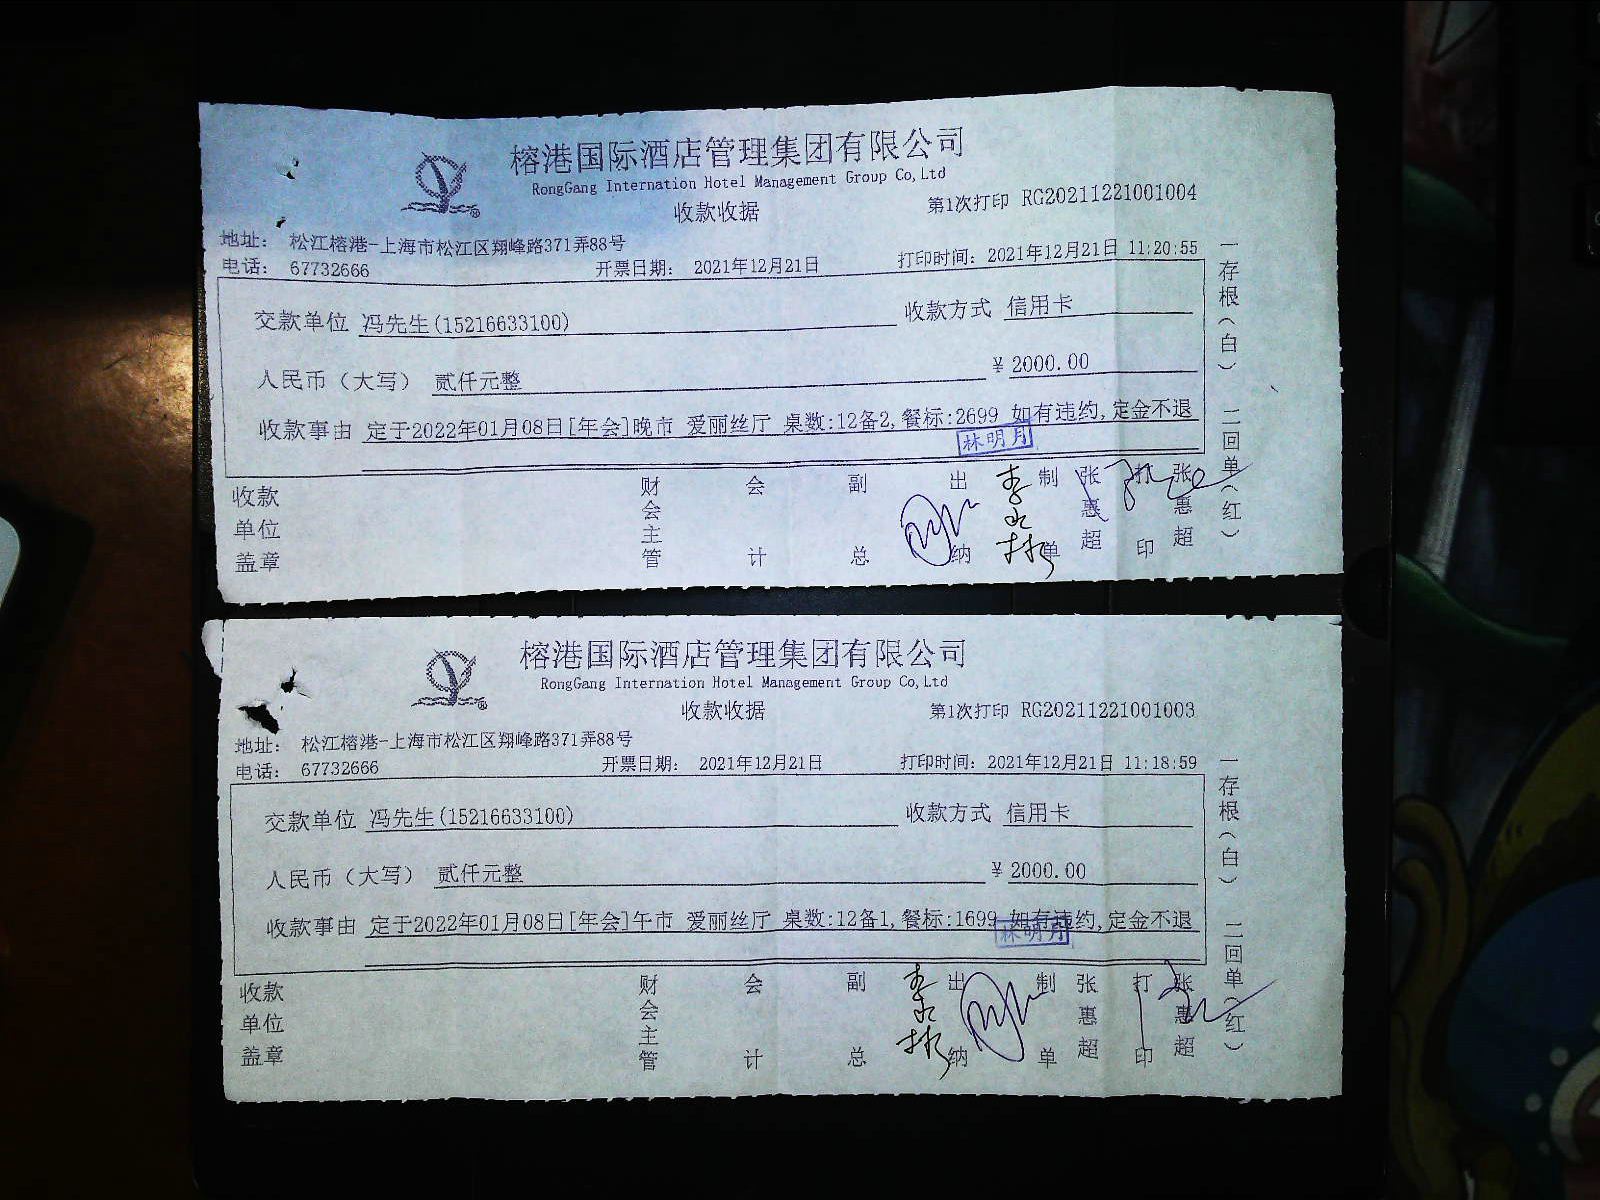 榕港国际酒店管理集团有限公司
RongGang Internation Hotel Management Group Co,Ltd
收款收据
第1次打印 RG20211221001004
地址： 松江榕港-上海市松江区翔峰路371弄88号
电话： 67732666 开票日期： 2021年12月21日 打印时间：2021年12月21日 11:20:55
交款单位 冯先生(15216633100) 收款方式 信用卡
人民币（大写） 贰仟元整 ￥2000.00
收款事由 定于2022年01月08日[年会]晚市 爱丽丝厅 桌数:12备2,餐标:2699 如有违约,定金不退
林明月
收款单位盖章 财会主管 会计 副总 出纳 李永彬 制单 张惠超 打印 张惠超
一存根（白） 二回单（红）
榕港国际酒店管理集团有限公司
RongGang Internation Hotel Management Group Co,Ltd
收款收据
第1次打印 RG20211221001003
地址： 松江榕港-上海市松江区翔峰路371弄88号
电话： 67732666 开票日期： 2021年12月21日 打印时间：2021年12月21日 11:18:59
交款单位 冯先生(15216633100) 收款方式 信用卡
人民币（大写） 贰仟元整 ￥2000.00
收款事由 定于2022年01月08日[年会]午市 爱丽丝厅 桌数:12备1,餐标:1699 如有违约,定金不退
林明月
收款单位盖章 财会主管 会计 副总 李永彬 出纳 制单 张惠超 打印 张惠超
一存根（白） 二回单（红）